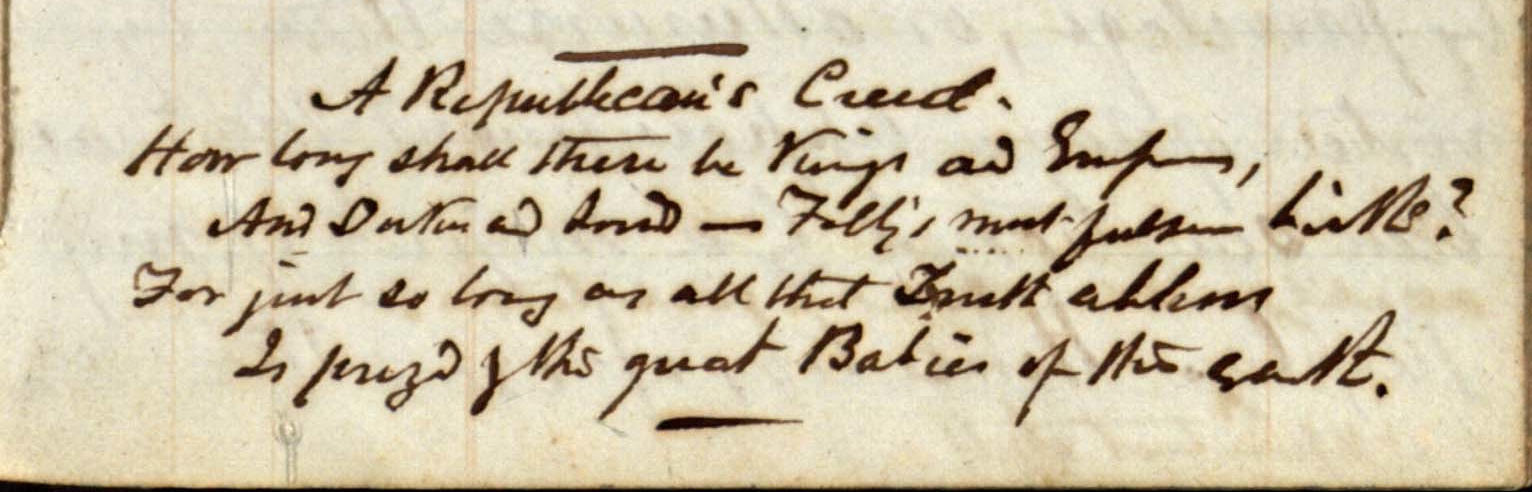 A Republican's Creed.
How long shall there be Kings and Emperors,
And Dukes and Lords — Folly's most fulsome birth?
For just so long as all that Truth abhors
Is priz'd by the great Babies of the earth.